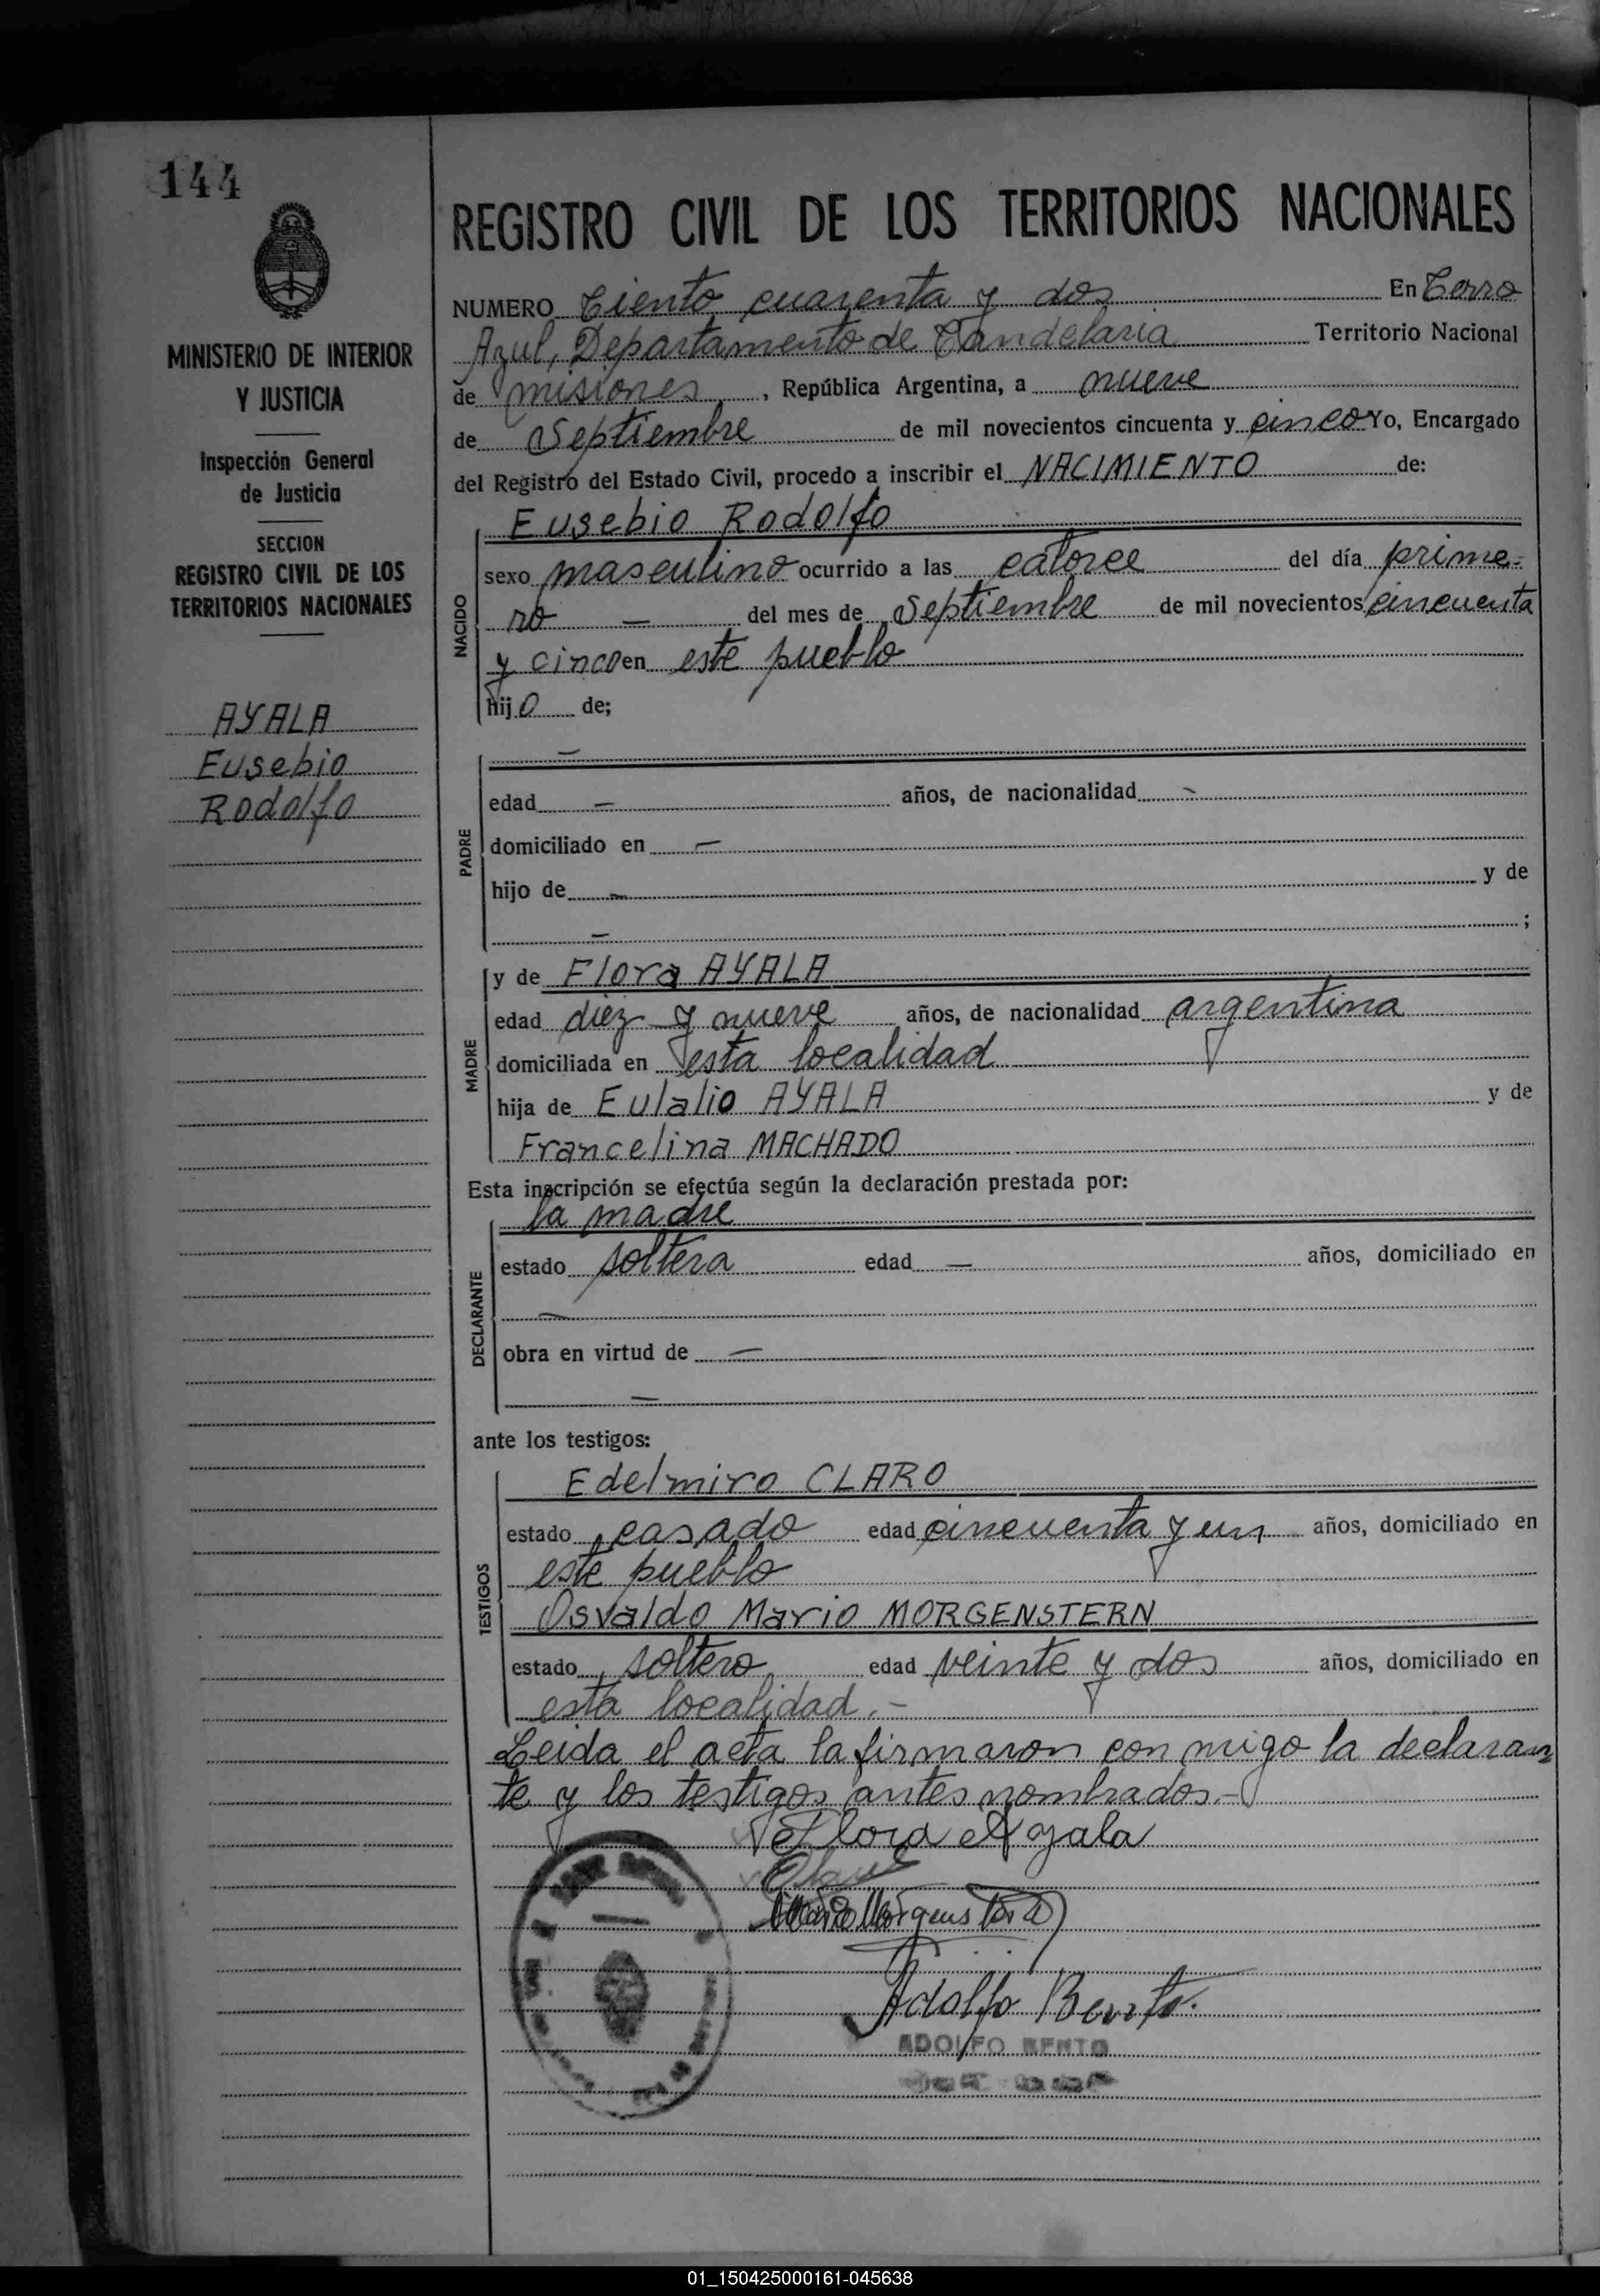 144
MINISTERIO DE INTERIOR
Y JUSTICIA
Inspección General
de Justicia
SECCION
REGISTRO CIVIL DE LOS
TERRITORIOS NACIONALES
AYALA
Eusebio
Rodolfo
REGISTRO CIVIL DE LOS TERRITORIOS NACIONALES
NUMERO Ciento cuarenta y dos En Cerro
Azul, Departamento de Candelaria Territorio Nacional
de misiones, República Argentina, a nueve
de Septiembre de mil novecientos cincuenta y cinco Yo, Encargado
del Registro del Estado Civil, procedo a inscribir el NACIMIENTO de:
NACIDO
Eusebio Rodolfo
sexo masculino ocurrido a las catorce del día prime-
ro — del mes de Septiembre de mil novecientos cincuenta
y cinco en este pueblo
hijo de;
PADRE
—
edad — años, de nacionalidad -
domiciliado en —
hijo de - y de
— ;
MADRE
y de Flora AYALA
edad diez y nueve años, de nacionalidad argentina
domiciliada en esta localidad
hija de Eulalio AYALA y de
Francelina MACHADO
Esta inscripción se efectúa según la declaración prestada por:
DECLARANTE
la madre
estado soltera edad — años, domiciliado en
—
obra en virtud de —
—
ante los testigos:
TESTIGOS
Edelmiro CLARO
estado casado edad cincuenta y un años, domiciliado en
este pueblo
Osvaldo Mario MORGENSTERN
estado soltero edad veinte y dos años, domiciliado en
esta localidad.-
Leida el acta la firmaron con migo la declaran
te y los testigos antes nombrados.-
Flora Ayala
Morgenstern
Adolfo Bento.
ADOLFO BENTO
01_150425000161-045638